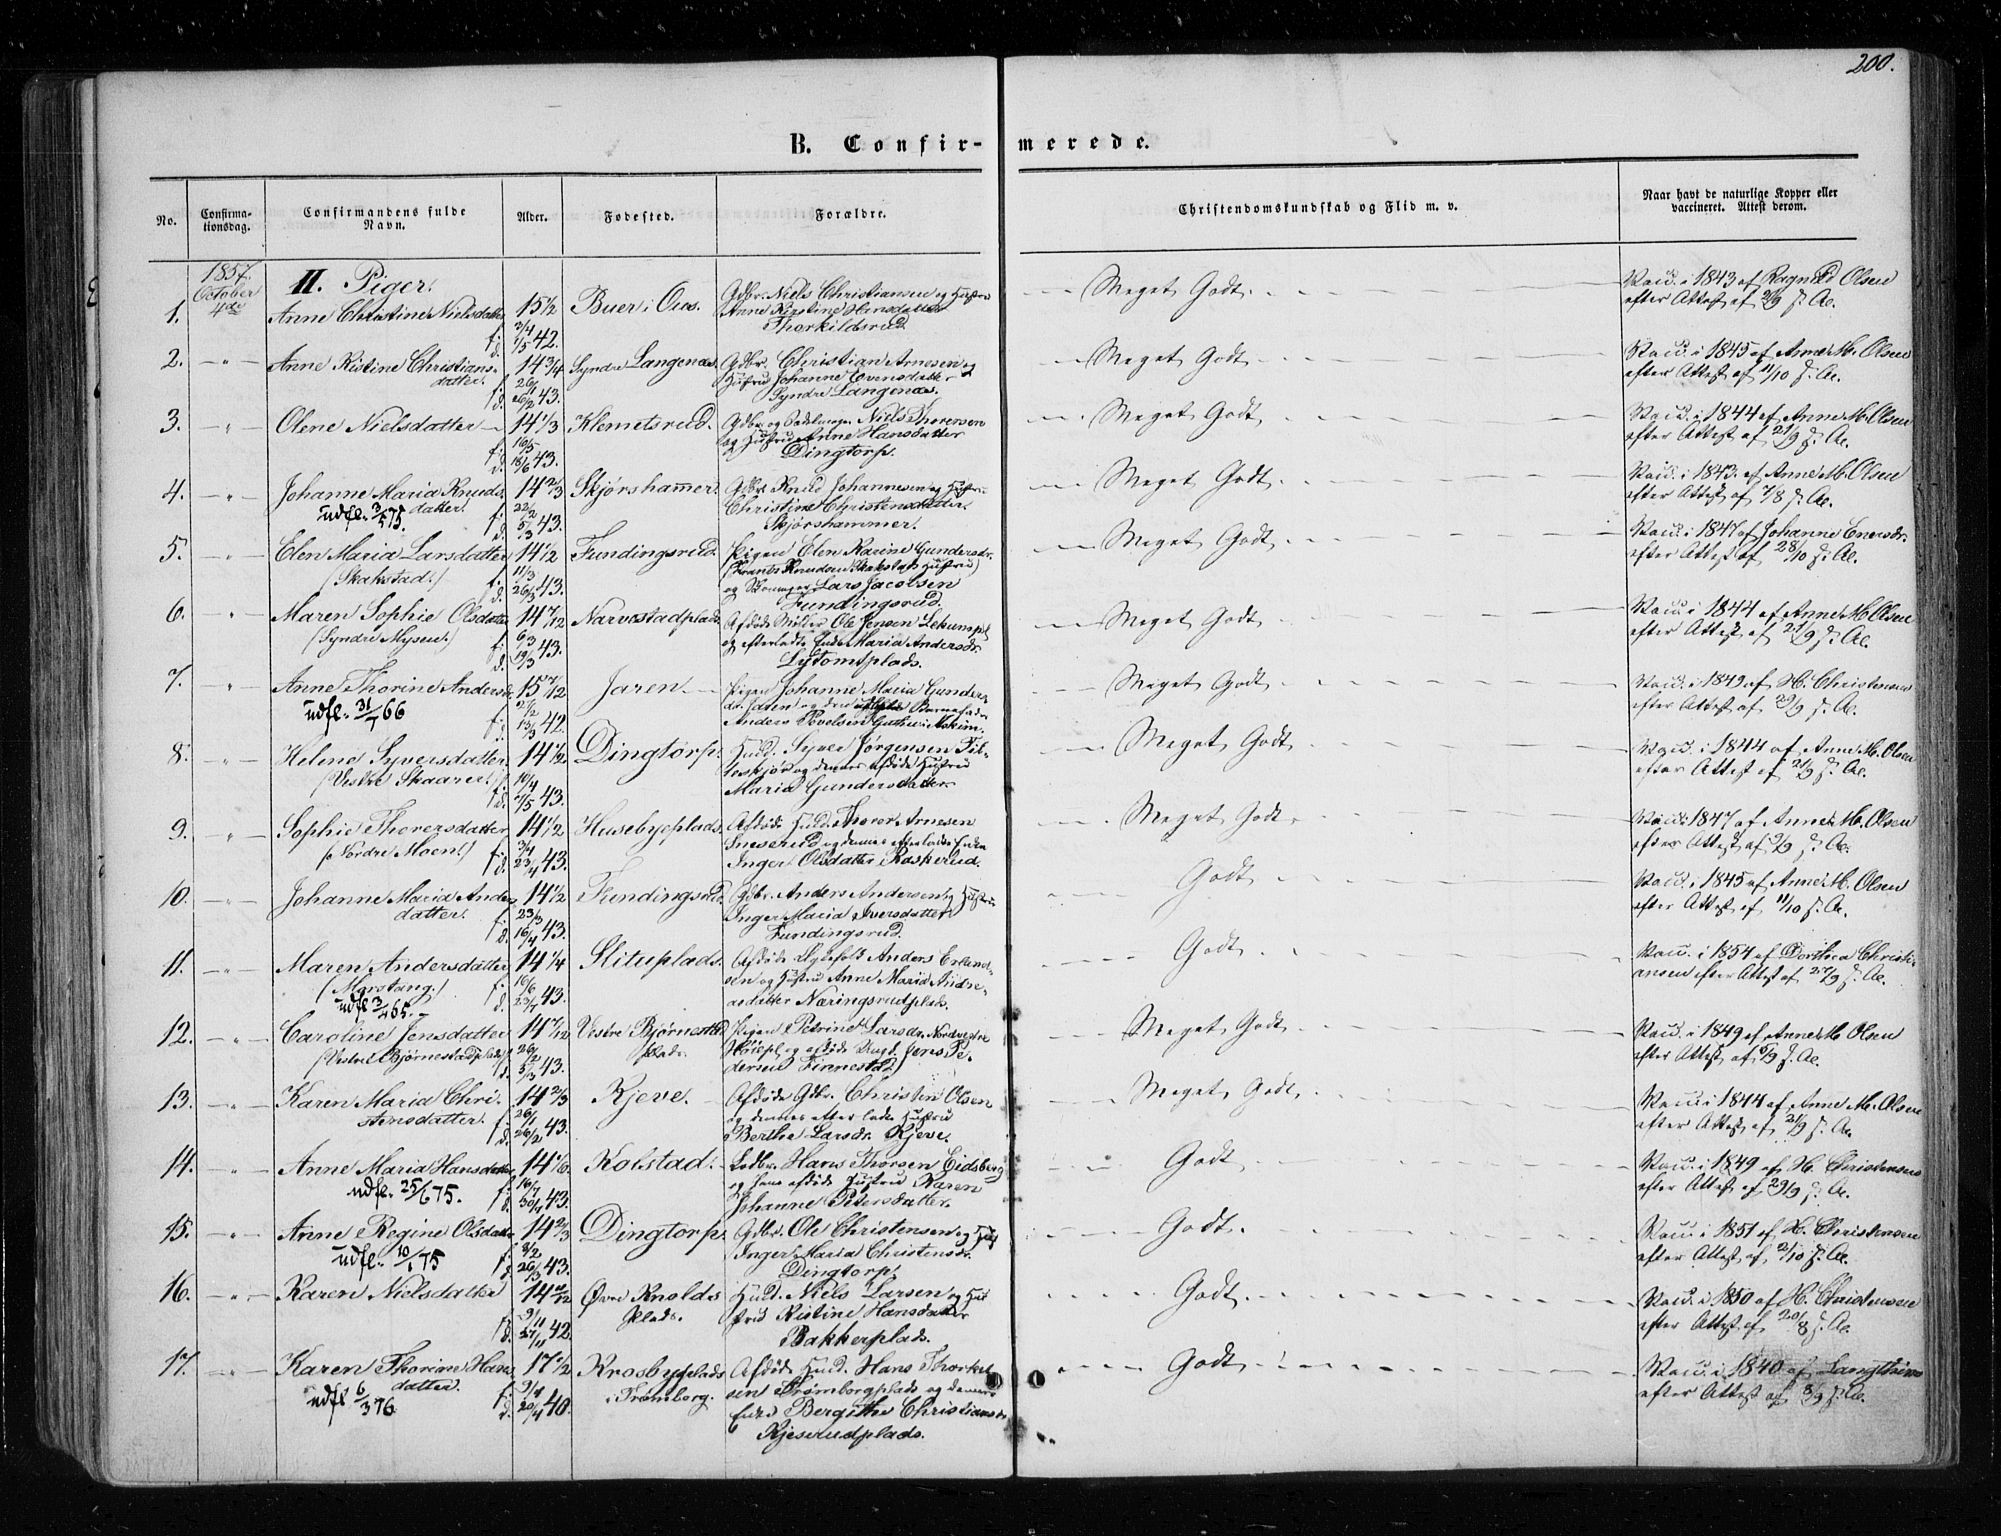 200.
B. Confirmerede.
No. Confirmationsdag. Confirmandens fulde Navn. Alder. Fødested. Forældre. Christendomskundskab og Flid m. v. Naar havt de naturlige Kopper eller vaccineret. Attest derom.
1857. October 4de
II. Piger.
1. Anne Christine Nielsdatter f: 3/4 d. 7/5 42. 15 1/2 Buer i Ous. Gdbr. Niels Christiansen og Hustru
Anne Kirstine Hansdatter
Thorkildsrud.
Meget Godt. Vacc. i 1843 af Ragnild Olsen
efter Attest af 2/9 s. A.
2. — " — Anne Kistine Christiansdatter. 14 3/4 f. 26/1 d. 26/2 43. Syndre Langenæs. Gdbr. Christian Arnesen og
Hustru Johanne Evensdatter
Syndre Langenæs.
Meget Godt Vacc. i 1845 af Anne M. Olsen
efter Attest af 11/10 s. A.
3. — " — Olene Nielsdatter 14 1/3 f. 16/5 d. 18/6 43. Klemetsrud. Gdbr. og Niels Thoresen
og Hustru Anne Hansdatter
Dingtorp.
Meget Godt Vacc. i 1844 af Anne M. Olsen
efter Attest af 21/9 s. A.
4. — " — Johanne Maria Knudsdatter. 14 2/3 f. 22/2 d. 5/3 43. Skjørshammer. Gdbr. Knud Johannesen og Hustru
Christine Christensdatter.
Skjørshammer.
udfl. 3/5 75.
Meget Godt. Vacc. i 1843. af Anne M. Olsen
efter Attest af 7/8 s. A.
5. " Elen Maria Larsdatter 14 1/2 f. 11/3 d. 26/3 43. Fundingsrud. Pigen Elen Karine Gundersdr.
(Skakstad.)
og Lars Jacobsen
Fundingsrud.
Meget Godt. Vacc. i 1847 af Johanne Enersdr.
efter Attest af 28/10 s. A.
6. " Maren Sophie Olsdatter 14 7/12 f. 6/3 d. 19/3 43. Narvestadplads. Afdøde Møller Ole Jensen
(Syndre Mysen.)
og efterladte Enke Maria Andersdr.
Lytomtplads.
Meget Godt Vacc. i 1844 af Anne M. Olsen
efter Attest af 21/9 s. A.
7. " Anne Thorine Andersdr. 15 7/12 f. 2/2 d. 13/3 42. Jaren. Pigen Johanne Maria Gundersdr. Jaren og Barnefader
Anders Povelsen Guthu i Askim.
udfl. 31/7 66
Meget Godt Vacc. i 1849 af H. Christensen
efter Attest af 29/9 s. A.
8. " Helene Syversdatter 14 1/2 f. 10/4 d. 7/5 43. Dingtorp. Huusmd. Syver Jørgensen
(Vestre Skaarer.)
og dennes afdøde Hustru
Maria Gundersdatter.
Meget Godt Vacc. i 1844 af Anne M. Olsen
efter Attest af 21/9 s. A.
9. " Sophie Thorersdatter 14 1/2 f. 3/4 d. 23/4 43. Husebyeplads. Afdøde Huusmd. Thorer Arnesen
(Nordre Moen.)
og dennes efterladte Enke
Inger Olsdatter Raskerud.
Meget Godt. Vacc. 1847 af Anne M. Olsen
efter Attest af 2/9 s. A.
10. — " — Johanne Maria Andersdatter. 14 1/2 f. 23/3 d. 16/4 43. Fundingsrud. Gdbr. Anders Andersen og Hustru
Inger Maria Iversdatter
Fundingsrud.
Godt Vacc. i 1845 af Anne M. Olsen
efter Attest af 11/10 s. A.
11. — " — Maren Andersdatter 14 1/4 f. 16/6 d. 23/7 43. Slituplads. Afdøde Anders Erlandsen og Hustru Anne Maria Andreasdatter Næringsrudplads.
(Morstong.)
udfl 3/4 65.
Godt Vacc. i 1854 af Dorthea Christiansen efter Attest af 27/9 s. A.
12. — " — Caroline Jensdatter 14 7/12 f. 26/2 d. 5/3 43. Vestre Bjørnestad plads. Pigen Petrine Larsdr.
(Vestre Bjørnestadplads)
og afdøde Ungk. Jens Pedersen Finnestad.
Meget Godt Vacc. i 1849 af Anne M Olsen
efter Attest af 5/9 s. A.
13. — " — Karen Maria Christensdatter. 14 2/3 f. 26/1 d. 26/2 43. Kjeve. Afdøde Gdbr. Christen Olsen
og dennes efterladte Hustru
Berthe Larsdr. Kjeve.
Meget Godt Vacc. i 1844 af Anne M. Olsen
efter Attest af 21/9 s. A.
14. " Anne Maria Hansdatter 14 1/6 f. 16/7 d. 30/7 43. Kolstad. Lodbr. Hans Thorsen Eidsberg
og hans afdøde Hustru Karen
Johanne Pedersdatter.
udfl. 25/6 75.
Godt Vacc. i 1849 af H. Christensen
efter Attest af 29/9 s. A.
15. — " — Anne Regine Olsdatter 14 2/3 f. 3/2 d. 26/3 43. Dingtorp. Gdbr. Ole Christensen og Hust
Inger Maria Christensdr.
Dingtorp.
udfl. 10/1 75
Godt. Vacc. i 1851 af H. Christensen
efter Attest af 2/10 s. A.
16. — " — Karen Nielsdatter 14 11/12 f. 9/11 d. 27/11 42. Øvre Knolds plads. Huusmd. Niels Larsen og Hustrud Kistine Hansdatter
Bakkerplads.
Godt. Vacc. i 1850 af H. Christensen
efter Attest af 20/8 s. A.
17. — " — Karen Thorine Hansdatter. 17 1/2 f. 9/4 d. 20/4 40. Krosbyeplads i Trømborg. Afdøde Huusmd. Hans Thorkelsen Trømborgplads og dennes
Enke Bergithe Christiansdr.
Kjeserudplads.
udfl 6/3 76
Godt Vacc. i 1840 af
efter Attest af 3/9 s. A.